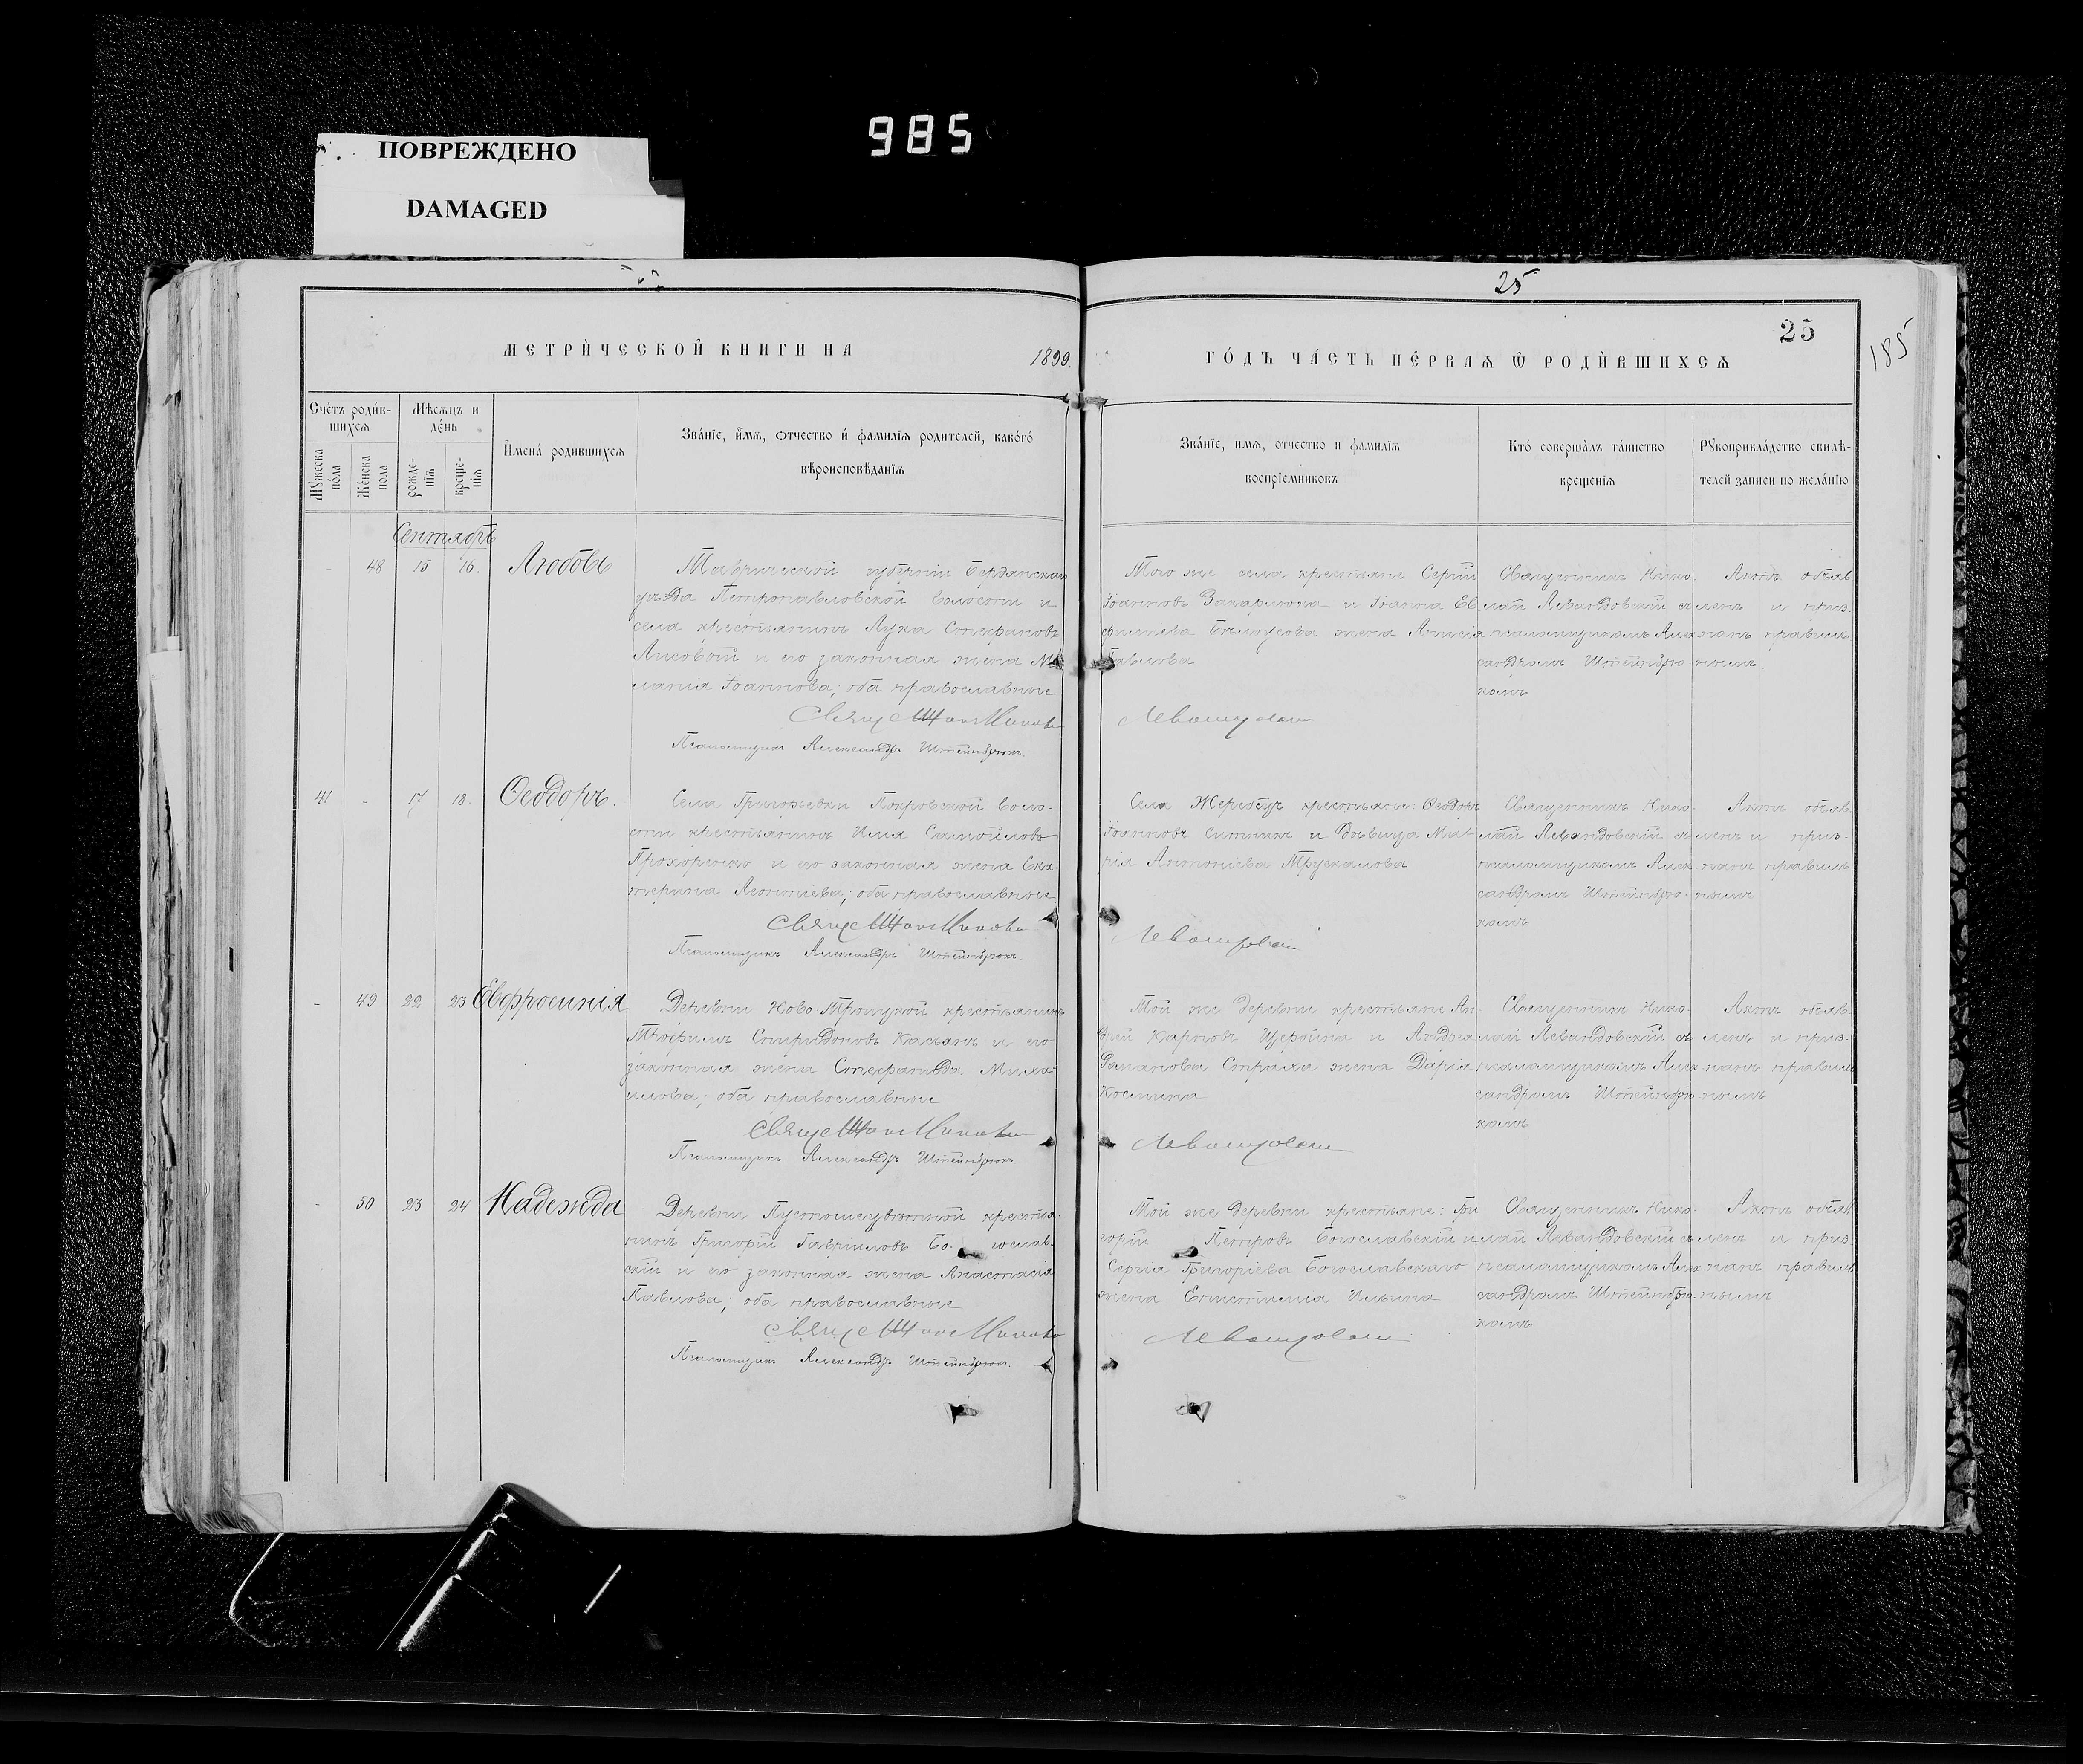 985
ПОВРЕЖДЕНО
DAMAGED
25
25
185
МЕТРИ́ЧЕСКОЙ КНИГИ НА 1899.
ГО́ДЪ ЧА́СТЬ ПЕ́РВАѦ Ѿ РОДИ́ВШИХСѦ
Сче́тъ роди́в-
шихсѧ
Мѣсѧцъ и
де́нь
И҆мена́ родившихсѧ
Зва́нїе, и҆́мѧ, ѻтчество и҆ фамилїѧ родителей, како́гѡ
вѣроисповѣданїѧ
Мꙋжеска
по́ла
Же́нска
пола
рожде-
нїѧ
креще-
нїѧ
Зва́нїе, имѧ, отчество и фамилїѧ
воспрїемниковъ
Кто́ совершалъ та́инство
крещенїѧ
Рꙋкоприкла́дство свидѣ-
телей записи по жела́нїю
Сентябрь
- 48 15 16. Любовь
Таврической губернiи Бердянскаго
уѣзда Петропавловской волости и
села крестьянинъ Лука Стефановъ
Лисовой и его законная жена Ме
ланiя Iоаннова; оба православные
Псаломщикъ Александръ Штейнбрюкъ.
Того же села крестьяне Сергiй
Iоанновъ Захарченко и Iоанна Ев
фимiева Бѣлоусова жена Анисiя
Павлова
Священникъ Нико-
лай Левандовскiй съ
псаломщикомъ Алек
сандромъ Штейнбрю-
комъ
Актъ объяв-
ленъ и приз-
нанъ правиль
нымъ.
41 - 17 18. Ѳеодоръ.
Села Григорьевки Покровской воло-
сти крестьянинъ Илiя Самойловъ
Прохоренко и его законная жена Ека-
терина Леонтiева; оба православные
Псаломщикъ Александръ Штейнбрюкъ.
Села Жеребецъ крестьяне: Ѳеодоръ
Iоанновъ Ситникъ и дѣвица Ма-
рiя Антонiева Трускалова
Священникъ Нико-
лай Левандовскiй съ
псаломщикомъ Алек-
сандромъ Штейнбрю-
комъ
Актъ объяв-
ленъ и приз-
нанъ правиль
нымъ
- 49 22 23 Евфросинiя
Деревни Ново-Троицкой крестьянинъ
Трофимъ Спиридоновъ Касьянъ и его
законная жена Стефанида Миха-
илова; оба православные
Псаломщикъ Александръ Штейнбрюкъ.
Той же деревни крестьяне Ан-
дрей Карповъ Щербина и Андрея
Романова Страха жена Дарiя
Космина
Священникъ Нико-
лай Левандовскiй съ
псаломщикомъ Алек
сандромъ Штейнбрю
комъ
Актъ объяв-
ленъ и приз-
нанъ правиль
нымъ
- 50 23 24 Надежда
Деревни крестья-
нинъ Григорiй Гаврiиловъ Бо- гослав-
скiй и его законная жена Анастасiя
Павлова; оба православные
Псаломщикъ Александръ Штейнбрюкъ.
Той же деревни крестьяне: Гри
горiй Петровъ Богославскiй и
Сергiя Григорiева Богославскаго
жена Епистимiя Ильина
Священникъ Нико-
лай Левандовскiй съ
псаломщикомъ Алек
сандромъ Штейнбрю-
комъ
Актъ объяв
ленъ и приз-
нанъ правиль
нымъ